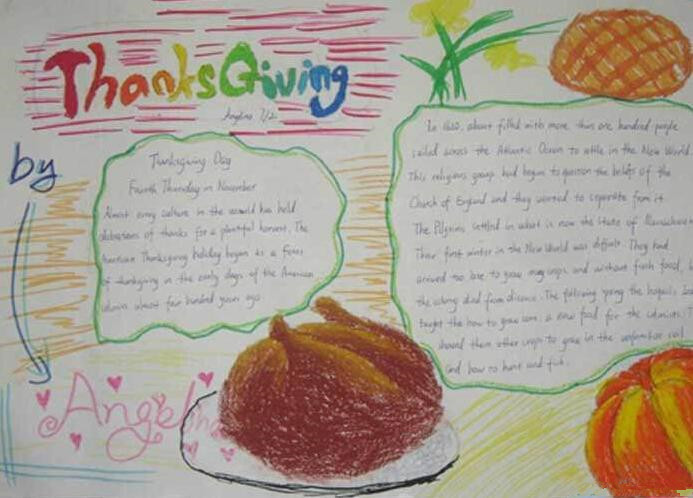 ThanksGiving
Angelina 7/2
by
Angelina
Thanksgiving Day
Fourth Thursday in November
Almost every culture in the world has held
celebrations of thanks for a plentiful harvest. The
American Thanksgiving holiday began as a feast
of thanksgiving in the early days of the American
almost four hundred years ago
In 1620, about filled with more than one hundred people
sailed across the Atlantic Ocean to settle in the New World.
This religious group had begun to question the beliefs of the
Church of England and they wanted to separate from it.
The Pilgrims settled in what is now the state of Massachuse
Their first winter in the New World was difficult. They had
arrived too late to grow many crops and without fresh food,
the colony died from disease. The following spring the Iroquois
taught the how to grow corn, a new food for the colonists. T
showed them other crops to grow in the unfamiliar soil
and how to hunt and fish.